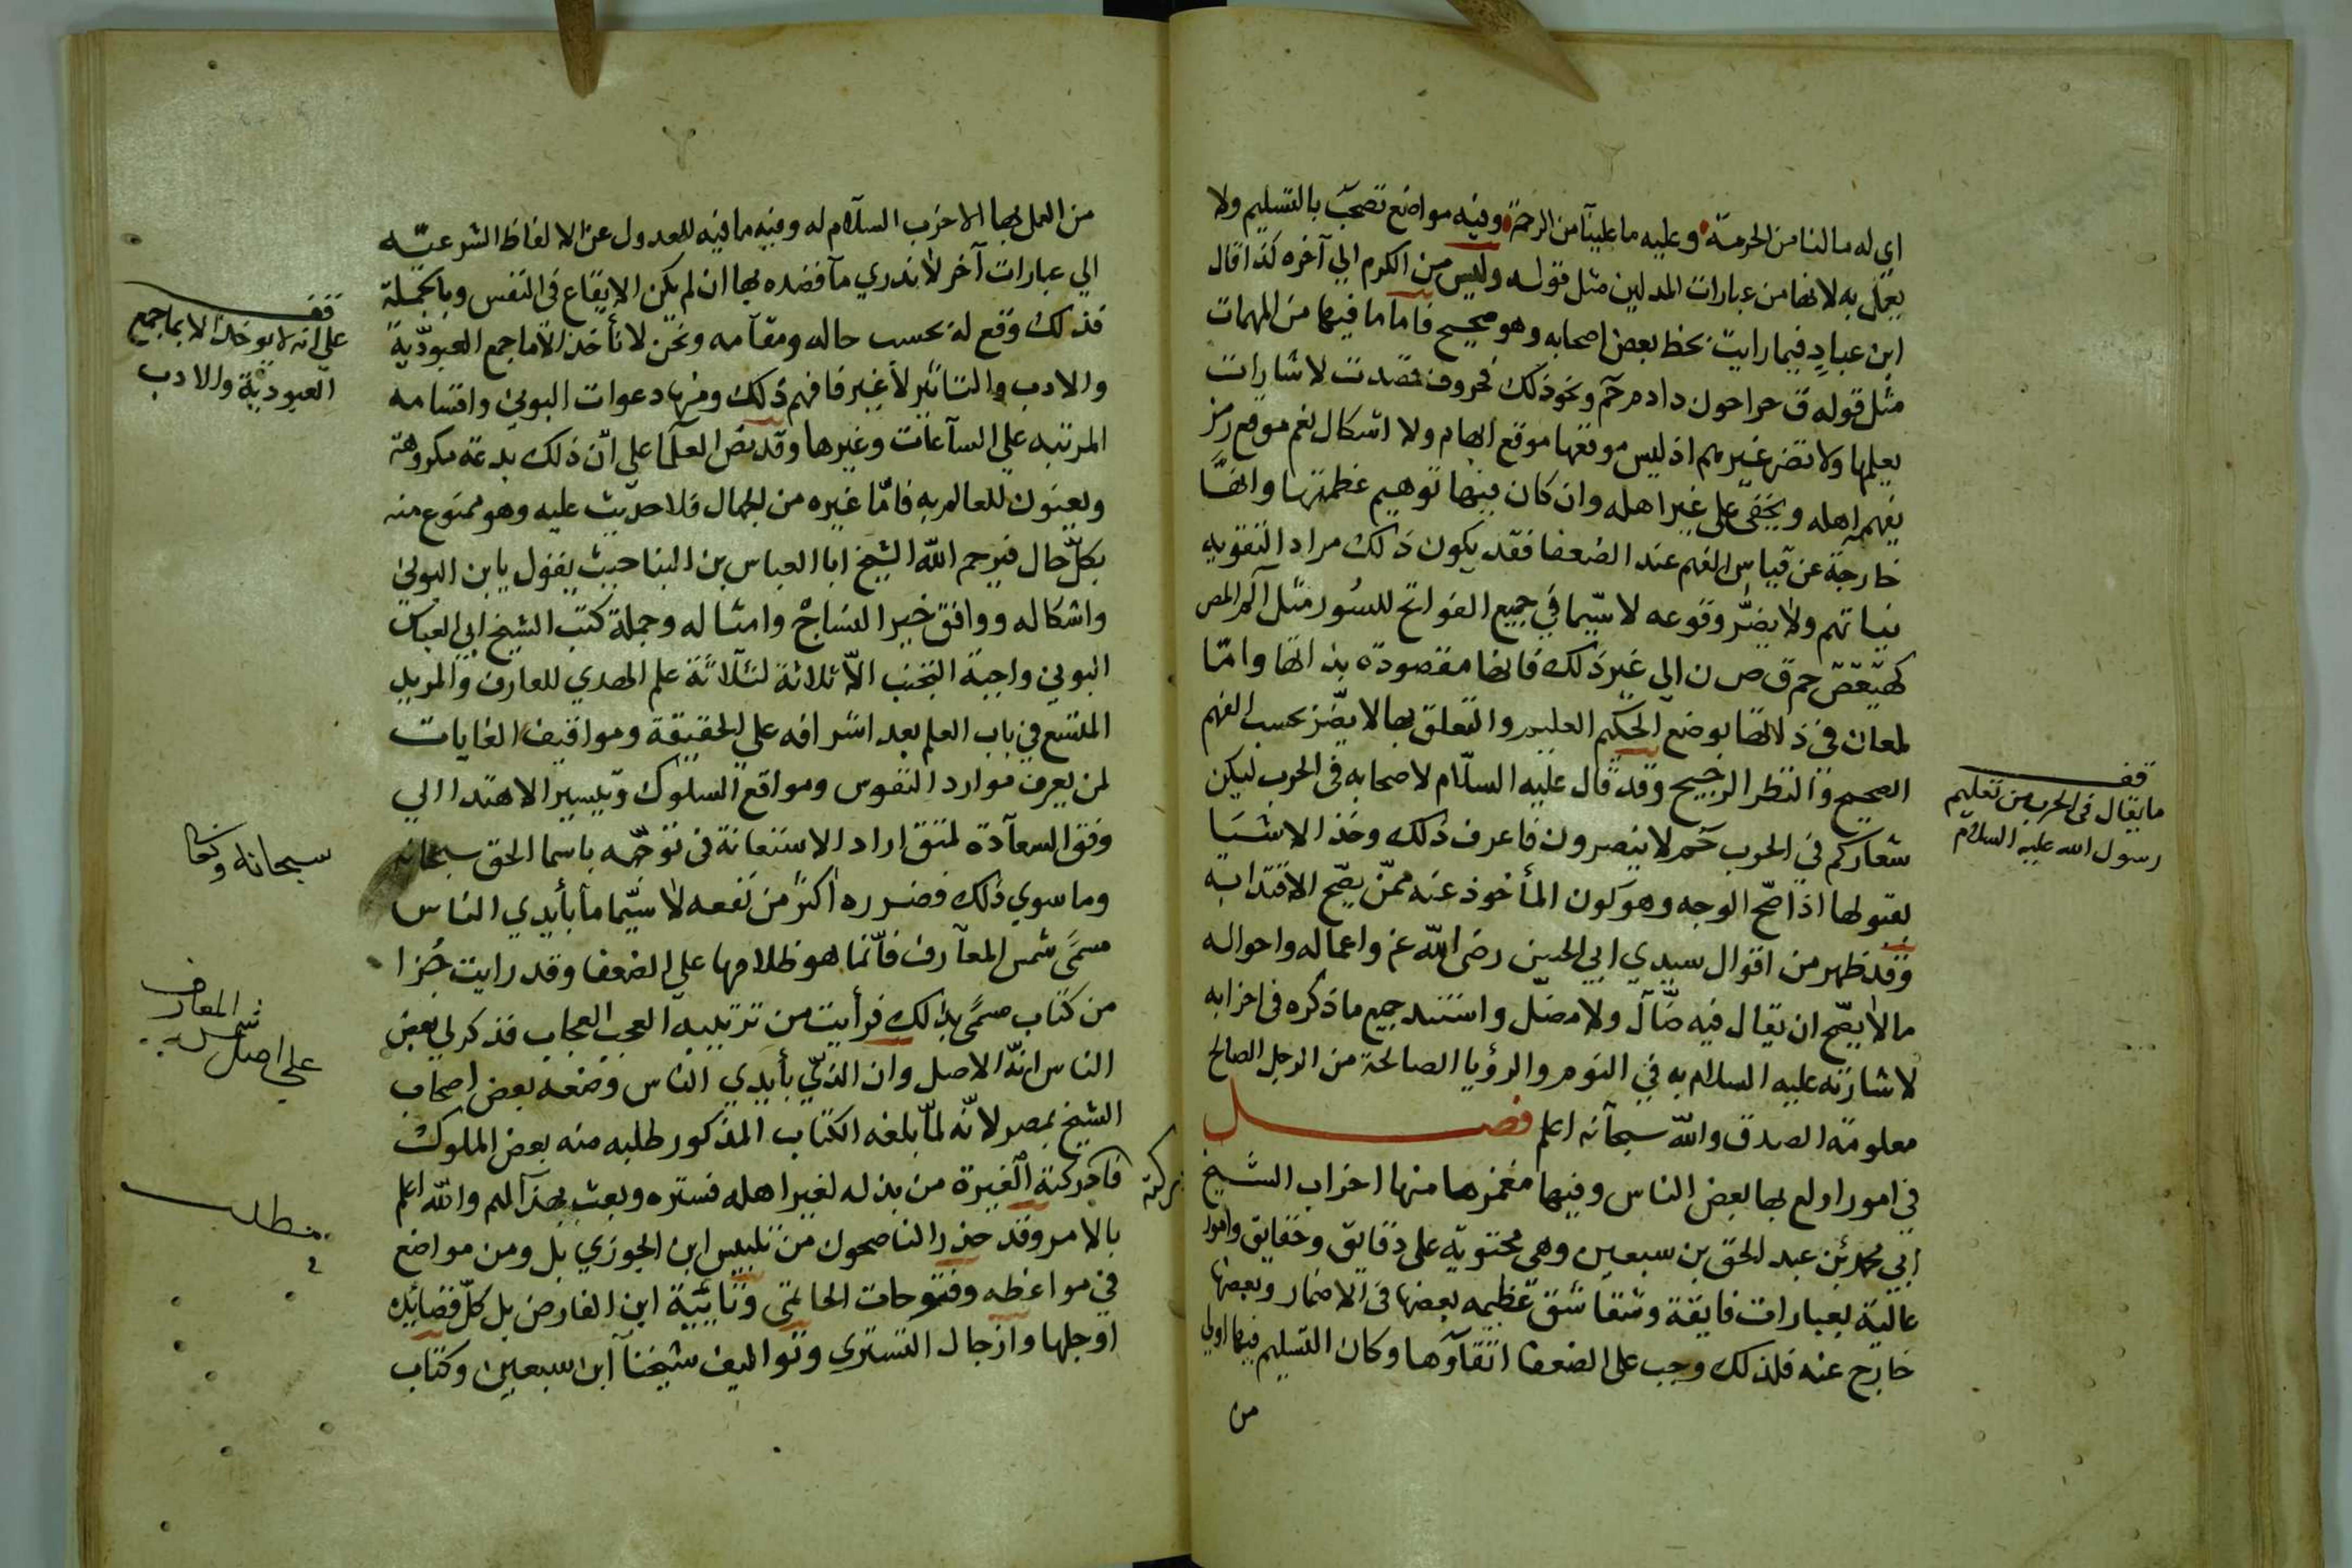 اي له مالنا من الحرمة وعليه ما علينا من الرحمة وفيه مواضع تصحب بالتسليم ولا
يعمل به لانها من عبارات المدلين مثل قوله وليس من الكرم الي آخره كذا قال
ابن عباد فيما رايت بخط بعض اصحابه وهو صحيح فاما ما فيها من المهمات
مثل قوله ق حراحون دادم حم ونحو ذلك فحروف قصدت لاشارات
يعلمها ولا تضر غيرهم اذ ليس موقعها موقع ابهام ولا اشكال نعم موقع رمز
يفهم اهله ويخفى على غير اهله وان كان فيها توهيم عظمتها وانها
خارجة عن قياس الفهم عند الضعفا فقد يكون ذلك مراد التقوية
نياتهم ولا يضر وقوعه لا سيما في جميع الفواتح للسور مثل الر المص
كهيعص حم ق ص ن الي غير ذلك فانها مقصودة بذاتها واما
لمعان في ذلالتها بوضع الحكيم العليم والتعلق بها لا يضر بحسب الفهم
الصحيح والنظر الرجيح وقد قال عليه السلام لاصحابه في الحرب ليكن
شعاركم في الحرب حم لا ينصرون فاعرف ذلك وخذ الاشيا
بقبولها اذا صح الوجه وهو كون المأخوذ عنه ممن يصح الاقتدا به
وقد ظهر من اقوال سيدي ابي الحسن رضي الله عنه واعماله واحواله
ما لا يصح ان يقال فيه ضال ولا مضل واستند جميع ما ذكره في احزابه
لاشارته عليه السلام به في النوم والرؤيا الصالحة من الرجل الصالح
معلومة الصدق والله سبحانه اعلم فصل
في امور اولع بها بعض الناس وفيها مغمزها منها احزاب الشيخ
ابي محمد بن عبد الحق بن سبعين وهي محتوية على دقايق وحقايق وامور
عالية بعبارات فايقة وشقاشق عظيمه بعضها في الاضمار وبعضها
خارج عنه فلذلك وجب على الضعفا اتقاؤها وكان التسليم فيها اولى
من
قف
ما يقال في الحرب من تعليم
رسول الله عليه السلام
من العمل بها الا حزب السلام له وفيه ما فيه للعدول عن الالفاظ الشرعيه
الي عبارات آخر لا ندري ما قصده بها ان لم يكن الايقاع في النفس وبالجملة
فذلك وقع له بحسب حاله ومقامه ونحن لا نأخذ الا ما جمع العبودية
والادب والتاثير لا غير فافهم ذلك ومنها دعوات البوني واقسامه
المرتبه على الساعات وغيرها وقد نص العلما على ان ذلك بدعة مكروهة
ويعنون للعالم به فاما غيره من الجهال فلا حديث عليه وهو ممنوع منه
بكل حال فيرحم الله الشيخ ابا العباس بن البنا حيث يقول يا بن البوني
واشكاله ووافق خير النساج وامثاله وجملة كتب الشيخ ابي العباس
البوني واجبة التجنب الا ثلاثة لثلاثة علم الهدي للعارف والمريد
المتسع في باب العلم بعد اشرافه على الحقيقة ومواقيف الغايات
لمن يعرف موارد النفوس ومواقع السلوك وتيسير الاهتدا الي
وفق السعادة لمتق اراد الاستعانة في توجه باسما الحق سبحانه
وما سوي ذلك فضرره اكثر من نفعه لا سيما ما بأيدي الناس
مسمى شمس المعارف فانما هو ظلامها على الضعفا وقد رايت جزا
من كتاب مسمى بذلك فرأيت من ترتيبه العجب العجاب فذكر لي بعض
الناس انه الاصل وان الذي بأيدي الناس وضعه بعض اصحاب
الشيخ بمصر لانه لما بلغه الكتاب المذكور طلبه منه بعض الملوك
فادركته الغيرة من بذله لغير اهله فستره وبعث بهذا لهم والله اعلم
بالامر وقد حذر الناصحون من تلبيس ابن الجوزي بل ومن مواضع
في مواعظه وفتوحات الحاتمي وتائية ابن الفارض بل كل قصائده
اوجلها وازجال التستري وتواليف شيخنا ابن سبعين وكتاب
قف
على انه لا يوخذ الا بما جمع
العبودية والادب
سبحانه وتعالى
على اصل شمس المعارف
مطلب